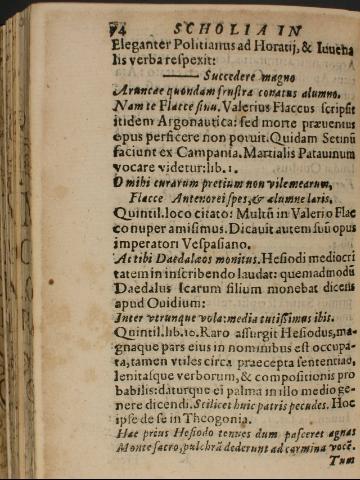 94 SCHOLIA IN
Eleganter Politianus ad Horatij, & Iuuena
lis verba respexit:
Succedere magno
Aruncae quondam frustra conatus alumno.
Nam te Flacce sinu. Valerius Flaccus scripsit
itidem Argonautica: sed morte præuentus
opus perficere non potuit. Quidam Setinũ
faciunt ex Campania. Martialis Patauinum
vocare videtur: lib. 1.
O mihi curarum pretium non vile mearum,
Flacce Antenorei spes, & alumne laris.
Quintil. loco citato: Multũ in Valerio Flac
co nuper amisimus. Dicauit autem suũ opus
imperatori Vespasiano.
At tibi Daedalaeos monitus. Hesiodi mediocri
tatem in inscribendo laudat: quemadmodũ
Daedalus Icarum filium monebat dicens
apud Ouidium:
Inter vtrunque vola: media tutissimus ibis.
Quintil. lib. 10. Raro assurgit Hesiodus, ma-
gnaque pars eius in nominibus est occupa-
ta, tamen vtiles circa praecepta sententiae,
lenitasque verborum, & compositionis pro
babilis: daturque ei palma in illo medio ge-
nere dicendi. Scilicet huic patris pecudes. Hoc
ipse de se in Theogonia.
Hae prius Hesiodo tenues dum pasceret agnas
Monte sacro, pulchrã dederunt ad carmina vocẽ.
Tum